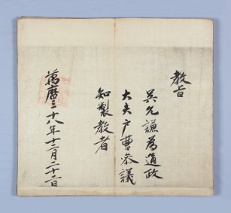 教旨
吳允謙為通政
大夫戶曹參議
知製教者
萬曆三十八年十二月二十六日